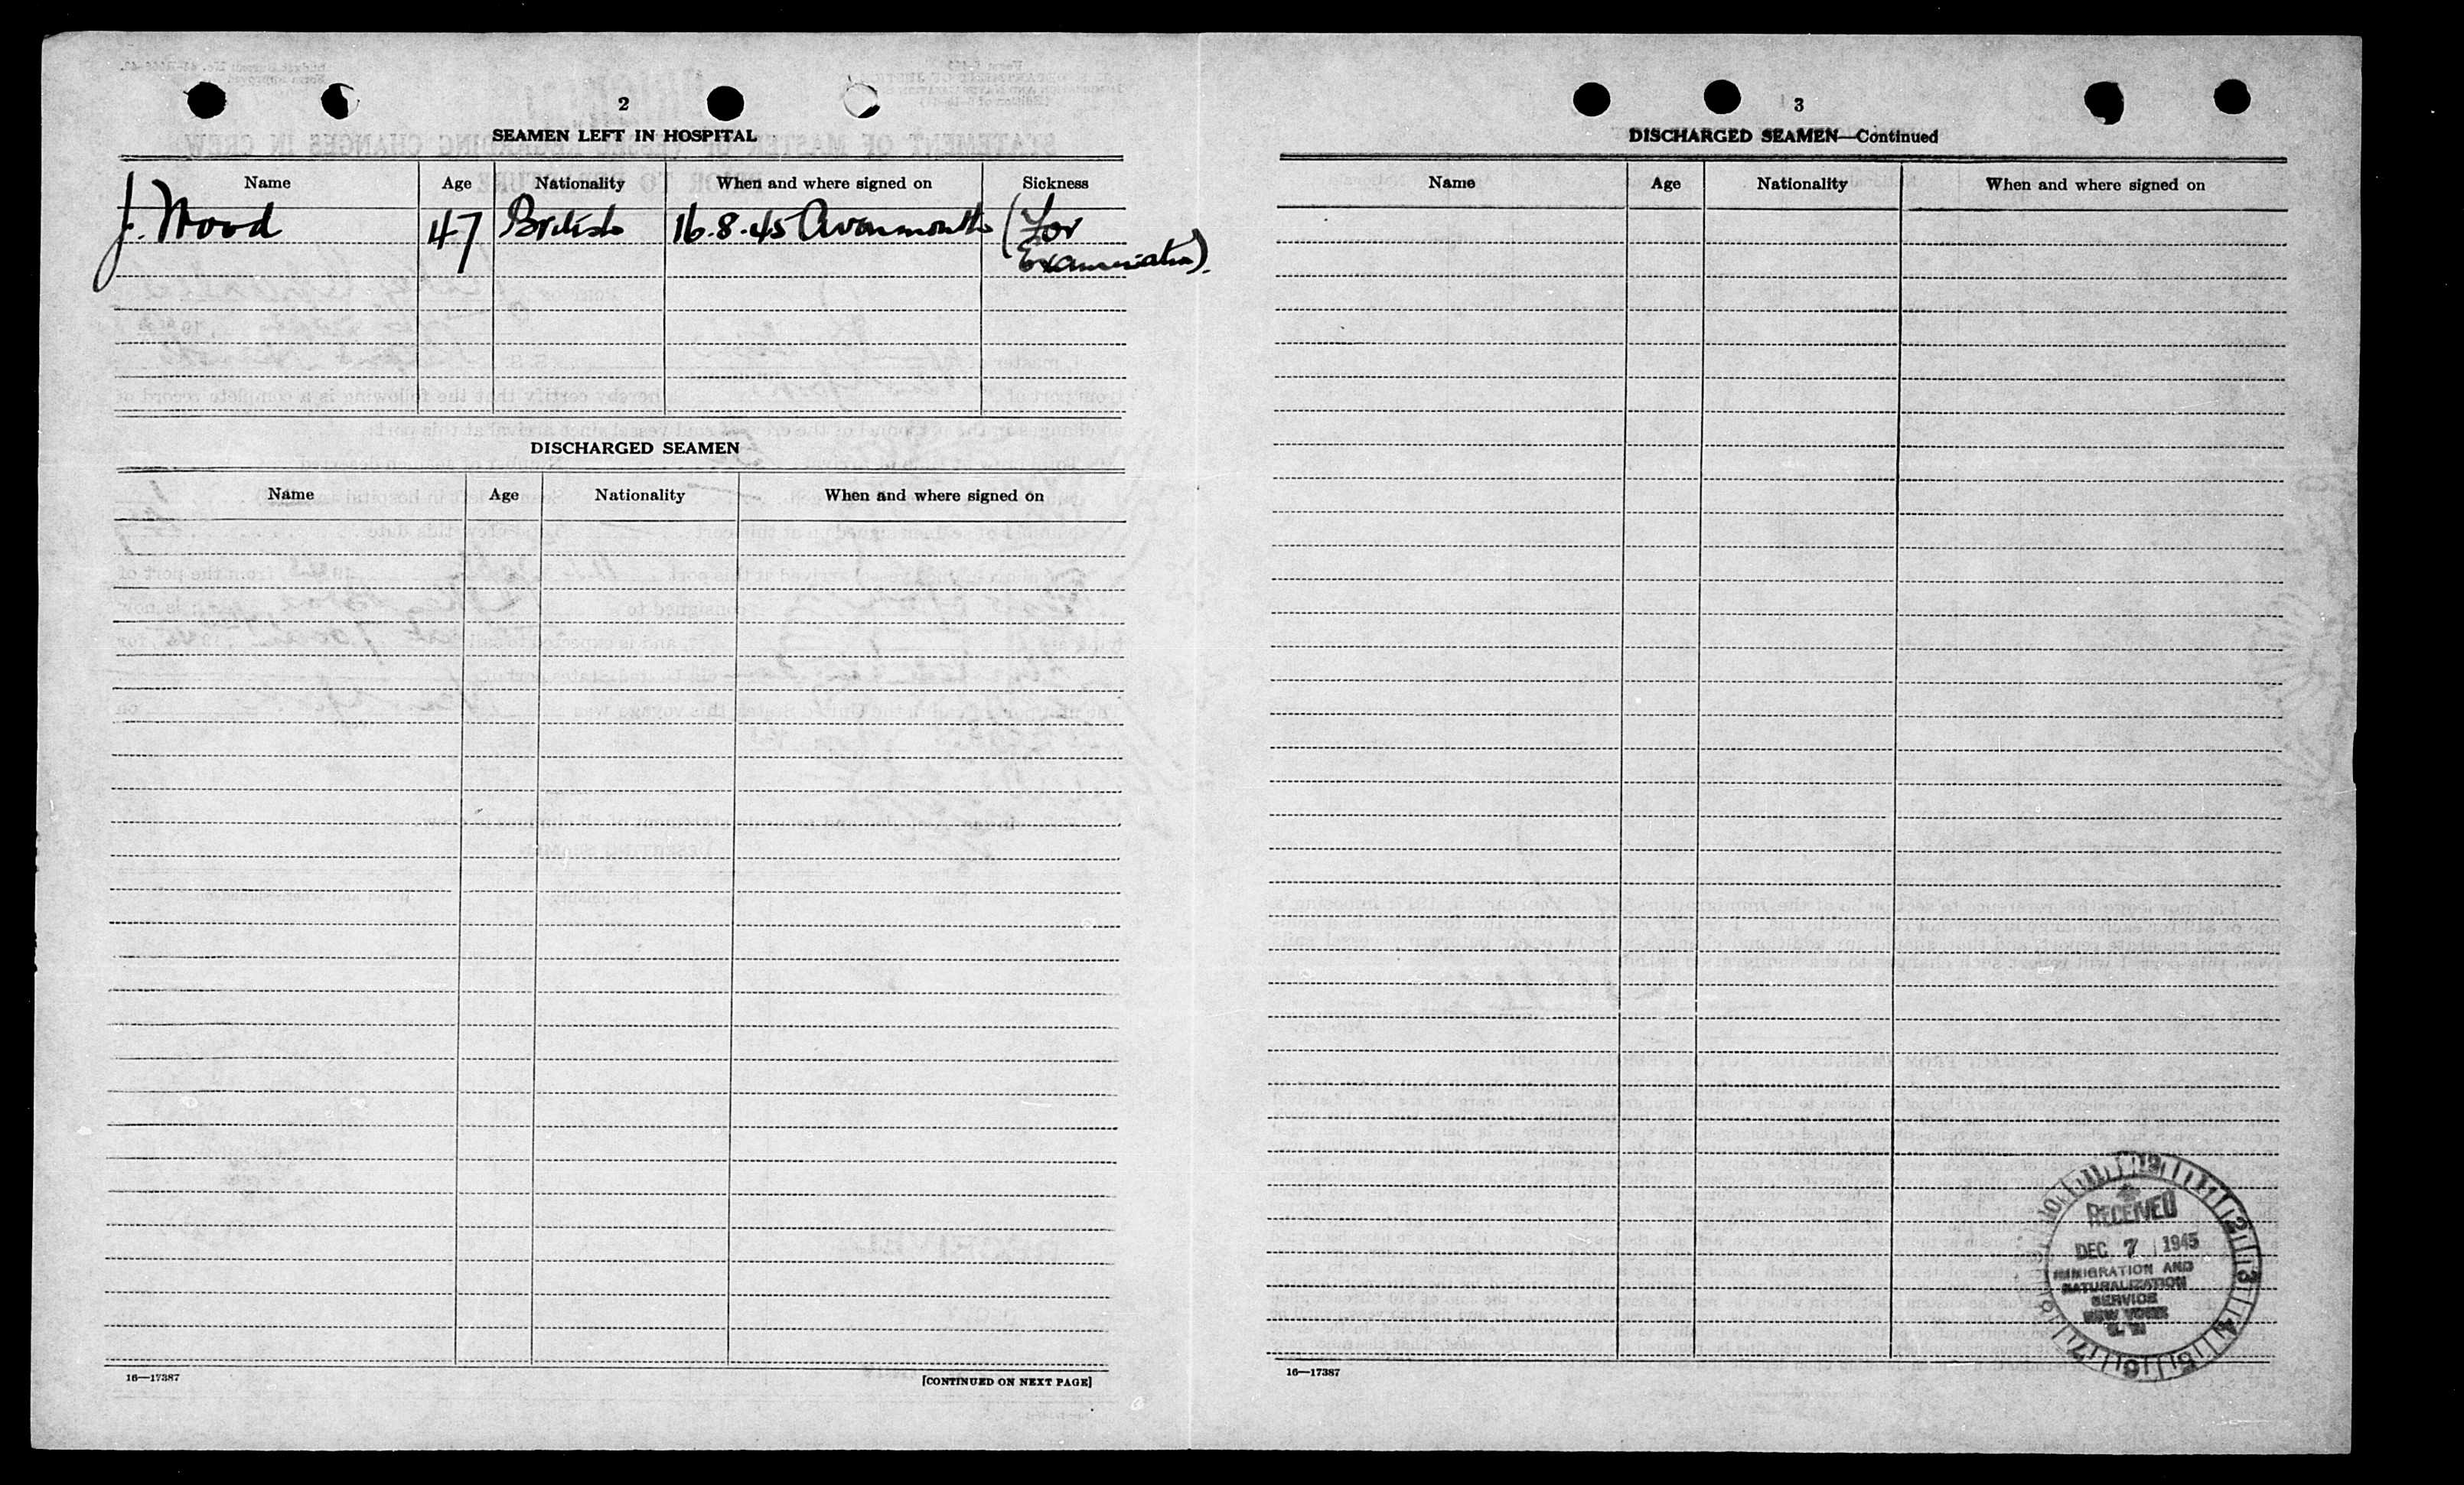 2
SEAMEN LEFT IN HOSPITAL
Name Age Nationality When and where signed on Sickness
J. Wood 47 British 16.8.45 Avonmouth (For
Examination).
DISCHARGED SEAMEN
Name Age Nationality When and where signed on
16—17387
[CONTINUED ON NEXT PAGE]
3
DISCHARGED SEAMEN—Continued
Name Age Nationality When and where signed on
RECEIVED
DEC 7 1945
IMMIGRATION AND
NATURALIZATION
SERVICE
NEW YORK
N. Y.
16—17387